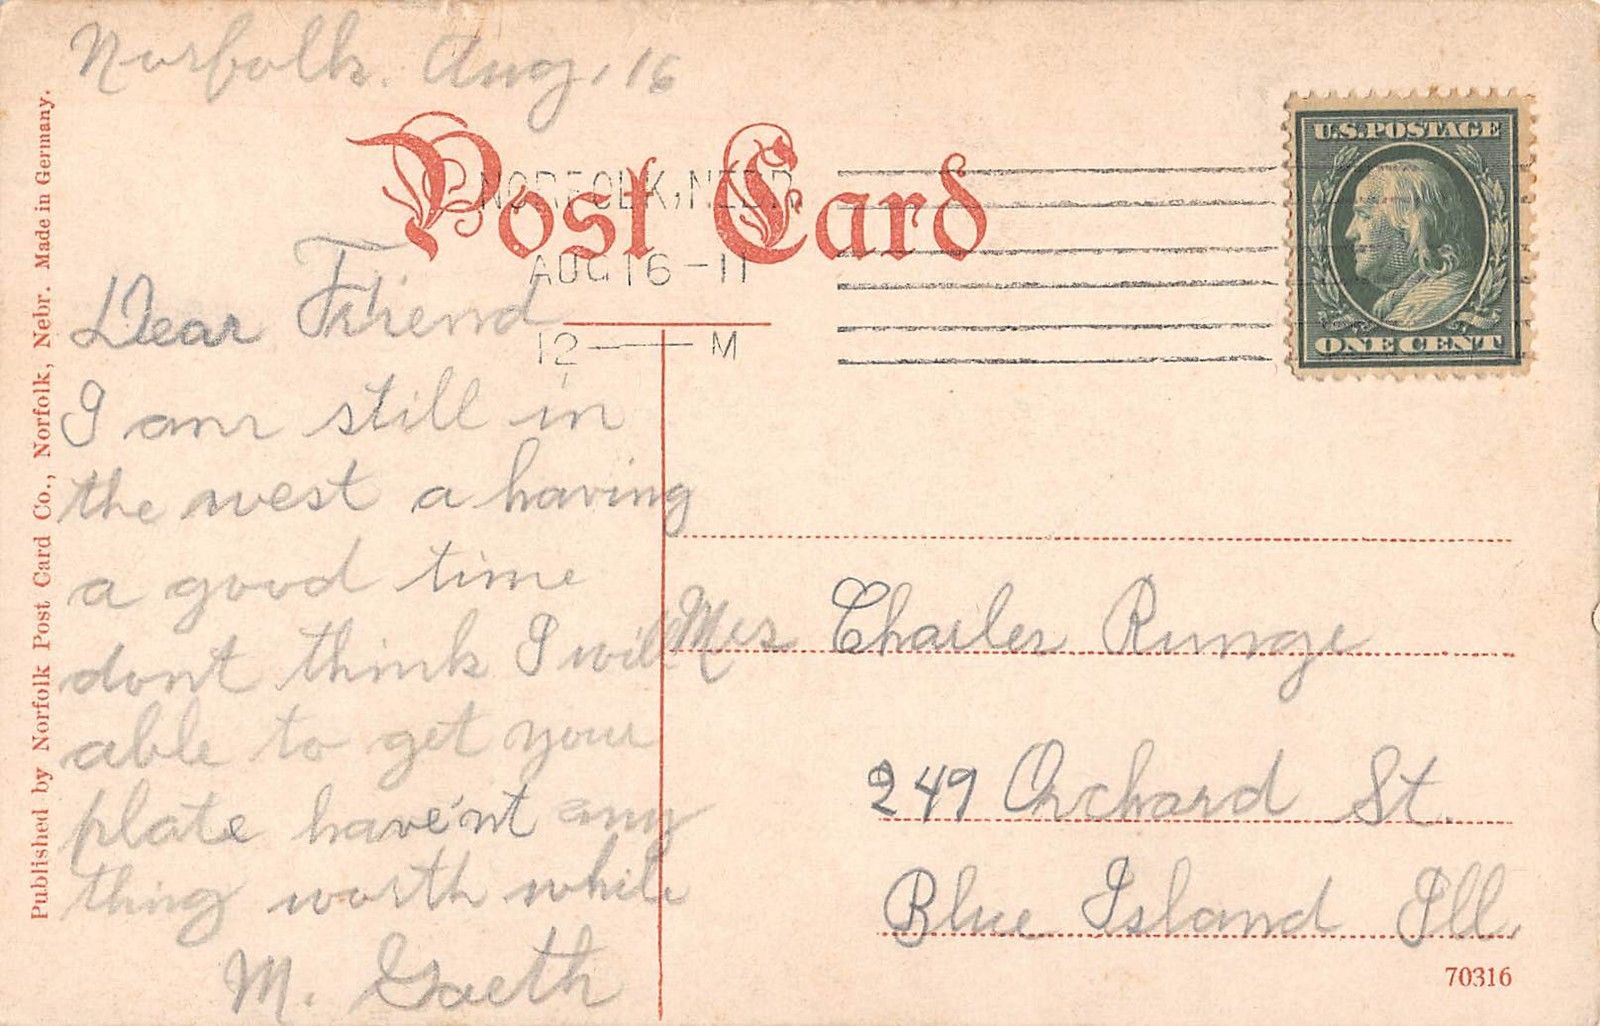 Norfolk. Aug, 16
Post Card
NORFOLK, NEBR
AUG 16 - 11
12 M
U.S. POSTAGE
ONE CENT
Dear Friend
I am still in
the west a having
a good time
dont think I will
able to get your
plate have'nt any
thing worth while
M. Gaeth
Mrs Charles Runge
249 Orchard St.
Blue Island Ill.
70316
Published by Norfolk Post Card Co., Norfolk, Nebr. Made in Germany.